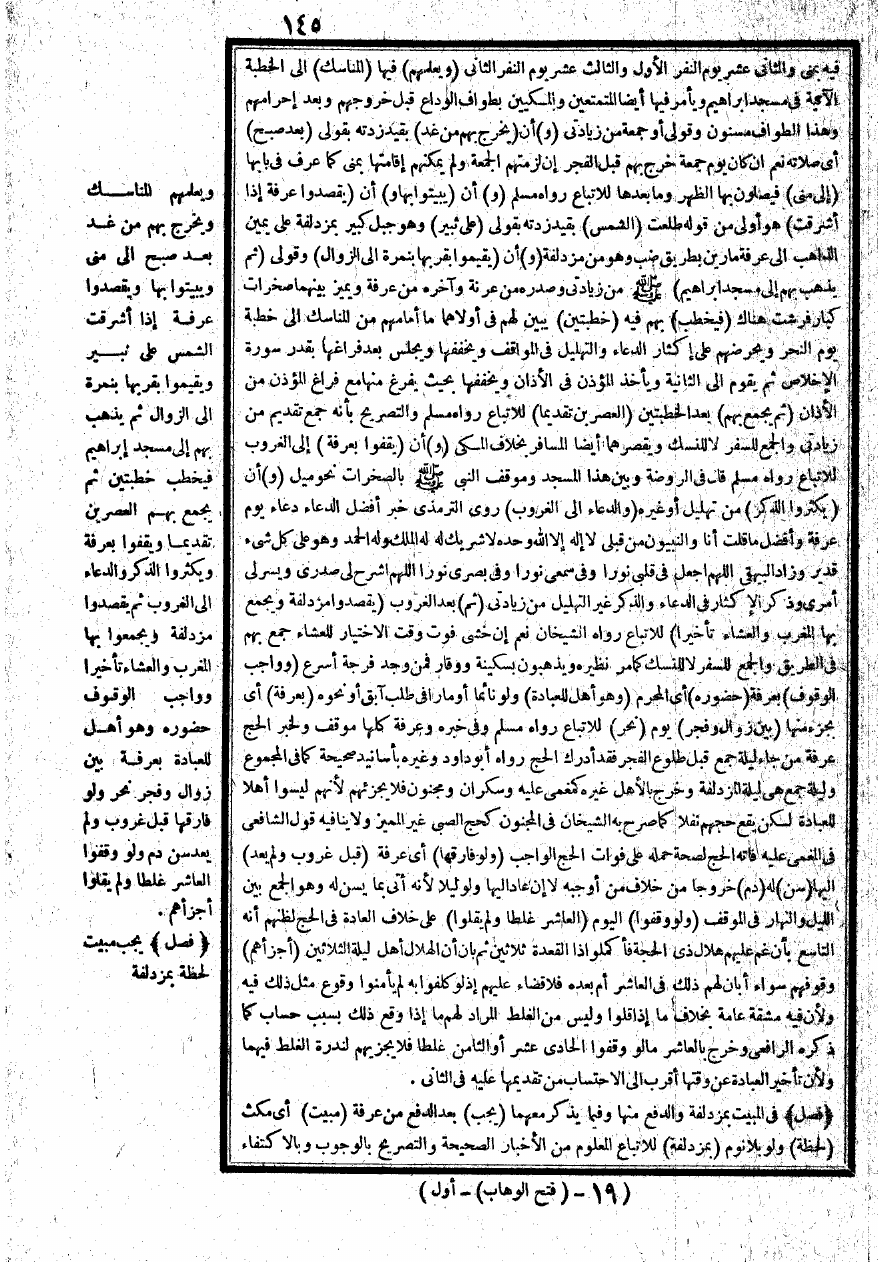 ١٤٥
فيه بمنى والثانى عشر يوم النفر الأول والثالث عشر يوم النفر الثانى (ويعلمهم) فيها (المناسك) الى الخطبة
الآتية فى مسجد ابراهيم ويأمر فيها أيضا المتمتعين والمكيين بطواف الوداع قبل خروجهم وبعد إحرامهم
وهذا الطواف مسنون وقولى أو جمعة من زيادتى (و) أن (يخرج بهم من غد) بقيد زدته بقولى (بعد صبح)
أى صلاته نعم ان كان يوم جمعة خرج بهم قبل الفجر إن لزمتهم الجمعة ولم يمكنهم إقامتها بمنى كما عرف فى بابها
(إلى منى) فيصلون بها الظهر وما بعدها للاتباع رواه مسلم (و) أن (يبيتوا بها و) أن (يقصدوا عرفة إذا
أشرقت) هو أولى من قوله طلعت (الشمس) بقيد زدته بقولى (على ثبير) وهو جبل كبير بمزدلفة على يمين
الذاهب الى عرفة مارين بطريق ضب وهو من مزدلفة (و) أن (يقيموا بقربها بنمرة الى الزوال) وقولى (ثم
يذهب بهم إلى مسجد ابراهيم) ﷺ من زيادتى وصدره من عرنة وآخره من عرفة ويميز بينهما صخرات
كبار فرشت هناك (فيخطب) بهم فيه (خطبتين) يبين لهم فى أولاهما ما أمامهم من المناسك الى خطبة
يوم النحر ويحرضهم على إكثار الدعاء والتهليل فى المواقف ويخففها ويجلس بعد فراغها بقدر سورة
الإخلاص ثم يقوم الى الثانية ويأخذ المؤذن فى الأذان ويخففها بحيث يفرغ منها مع فراغ المؤذن من
الأذان (ثم يجمع بهم) بعد الخطبتين (العصرين تقديما) للاتباع رواه مسلم والتصريح بأنه جمع تقديم من
زيادتى والجمع للسفر لا للنسك ويقصرهما أيضا المسافر بخلاف المكى (و) أن (يقفوا بعرفة) إلى الغروب
للاتباع رواه مسلم قال فى الروضة وبين هذا المسجد وموقف النبى ﷺ بالصخرات نحو ميل (و) أن
(يكثروا الذكر) من تهليل أو غيره (والدعاء الى الغروب) روى الترمذى خبر أفضل الدعاء دعاء يوم
عرفة وأفضل ما قلت أنا والنبيون من قبلى لا إله إلا الله وحده لا شريك له له الملك وله الحمد وهو على كل شىء
قدير وزاد البيهقى اللهم اجعل فى قلبى نورا وفى سمعى نورا وفى بصرى نورا اللهم اشرح لى صدرى ويسر لى
أمرى وذكر الإكثار فى الدعاء والذكر غير التهليل من زيادتى (ثم) بعد الغروب (يقصدوا مزدلفة ويجمع
بها المغرب والعشاء تأخيرا) للاتباع رواه الشيخان نعم إن خشى فوت وقت الاختيار للعشاء جمع بهم
فى الطريق والجمع للسفر لا للنسك كما مر نظيره ويذهبون بسكينة ووقار فمن وجد فرجة أسرع (وواجب
الوقوف) بعرفة (حضوره) أى المحرم (وهو أهل للعبادة) ولو نائما أو مارا فى طلب آبق أو نحوه (بعرفة) أى
بجزء منها (بين زوال وفجر) يوم (نحر) للاتباع رواه مسلم وفى خبره وعرفة كلها موقف ولخبر الحج
عرفة من جاء ليلة جمع قبل طلوع الفجر فقد أدرك الحج رواه أبو داود وغيره بأسانيد صحيحة كما فى المجموع
وليلة جمع هى ليلة المزدلفة وخرج بالأهل غيره كمغمى عليه وسكران ومجنون فلا يجزئهم لأنهم ليسوا أهلا
للعبادة لكن يقع حجهم نفلا كما صرح به الشيخان فى المجنون كحج الصبى غير المميز ولا ينافيه قول الشافعى
فى المغمى عليه فاته الحج لصحة حمله على فوات الحج الواجب (ولو فارقها) أى عرفة (قبل غروب ولم يعد)
اليها (سن) له (دم) خروجا من خلاف من أوجبه لا إن عاد اليها ولو ليلا لأنه أتى بما يسن له وهو الجمع بين
الليل والنهار فى الموقف (ولو وقفوا) اليوم (العاشر غلطا ولم يقلوا) على خلاف العادة فى الحج لظنهم أنه
التاسع بأن غم عليهم هلال ذى الحجة فأكملوا ذا القعدة ثلاثين ثم بان أن الهلال أهل ليلة الثلاثين (أجزأهم)
وقوفهم سواء أبان لهم ذلك فى العاشر أم بعده فلا قضاء عليهم إذ لو كلفوا به لم يأمنوا وقوع مثل ذلك فيه
ولأن فيه مشقة عامة بخلاف ما إذا قلوا وليس من الغلط المراد لهم ما إذا وقع ذلك بسبب حساب كما
ذكره الرافعى وخرج بالعاشر ما لو وقفوا الحادى عشر أو الثامن غلطا فلا يجزيهم لندرة الغلط فيهما
ولأن تأخير العبادة عن وقتها أقرب الى الاحتساب من تقديمها عليه فى الثانى .
(فصل) فى المبيت بمزدلفة والدفع منها وفيما يذكر معهما (يجب) بعد الدفع من عرفة (مبيت) أى مكث
(لحظة) ولو بلا نوم (بمزدلفة) للاتباع المعلوم من الأخبار الصحيحة والتصريح بالوجوب وبالاكتفاء
ويعلمهم المناسك
ويخرج بهم من غد
بعد صبح الى منى
ويبيتوا بها ويقصدوا
عرفة إذا أشرقت
الشمس على ثبير
ويقيموا بقربها بنمرة
الى الزوال ثم يذهب
بهم إلى مسجد إبراهيم
فيخطب خطبتين ثم
يجمع بهم العصرين
تقديما ويقفوا بعرفة
ويكثروا الذكر والدعاء
الى الغروب ثم يقصدوا
مزدلفة ويجمعوا بها
المغرب والعشاء تأخيرا
وواجب الوقوف
حضوره وهو أهل
للعبادة بعرفة بين
زوال وفجر نحر ولو
فارقها قبل غروب ولم
يعد سن دم ولو وقفوا
العاشر غلطا ولم يقلوا
أجزأهم .
(فصل) يجب مبيت
لحظة بمزدلفة
(١٩ - (فتح الوهاب) - أول)